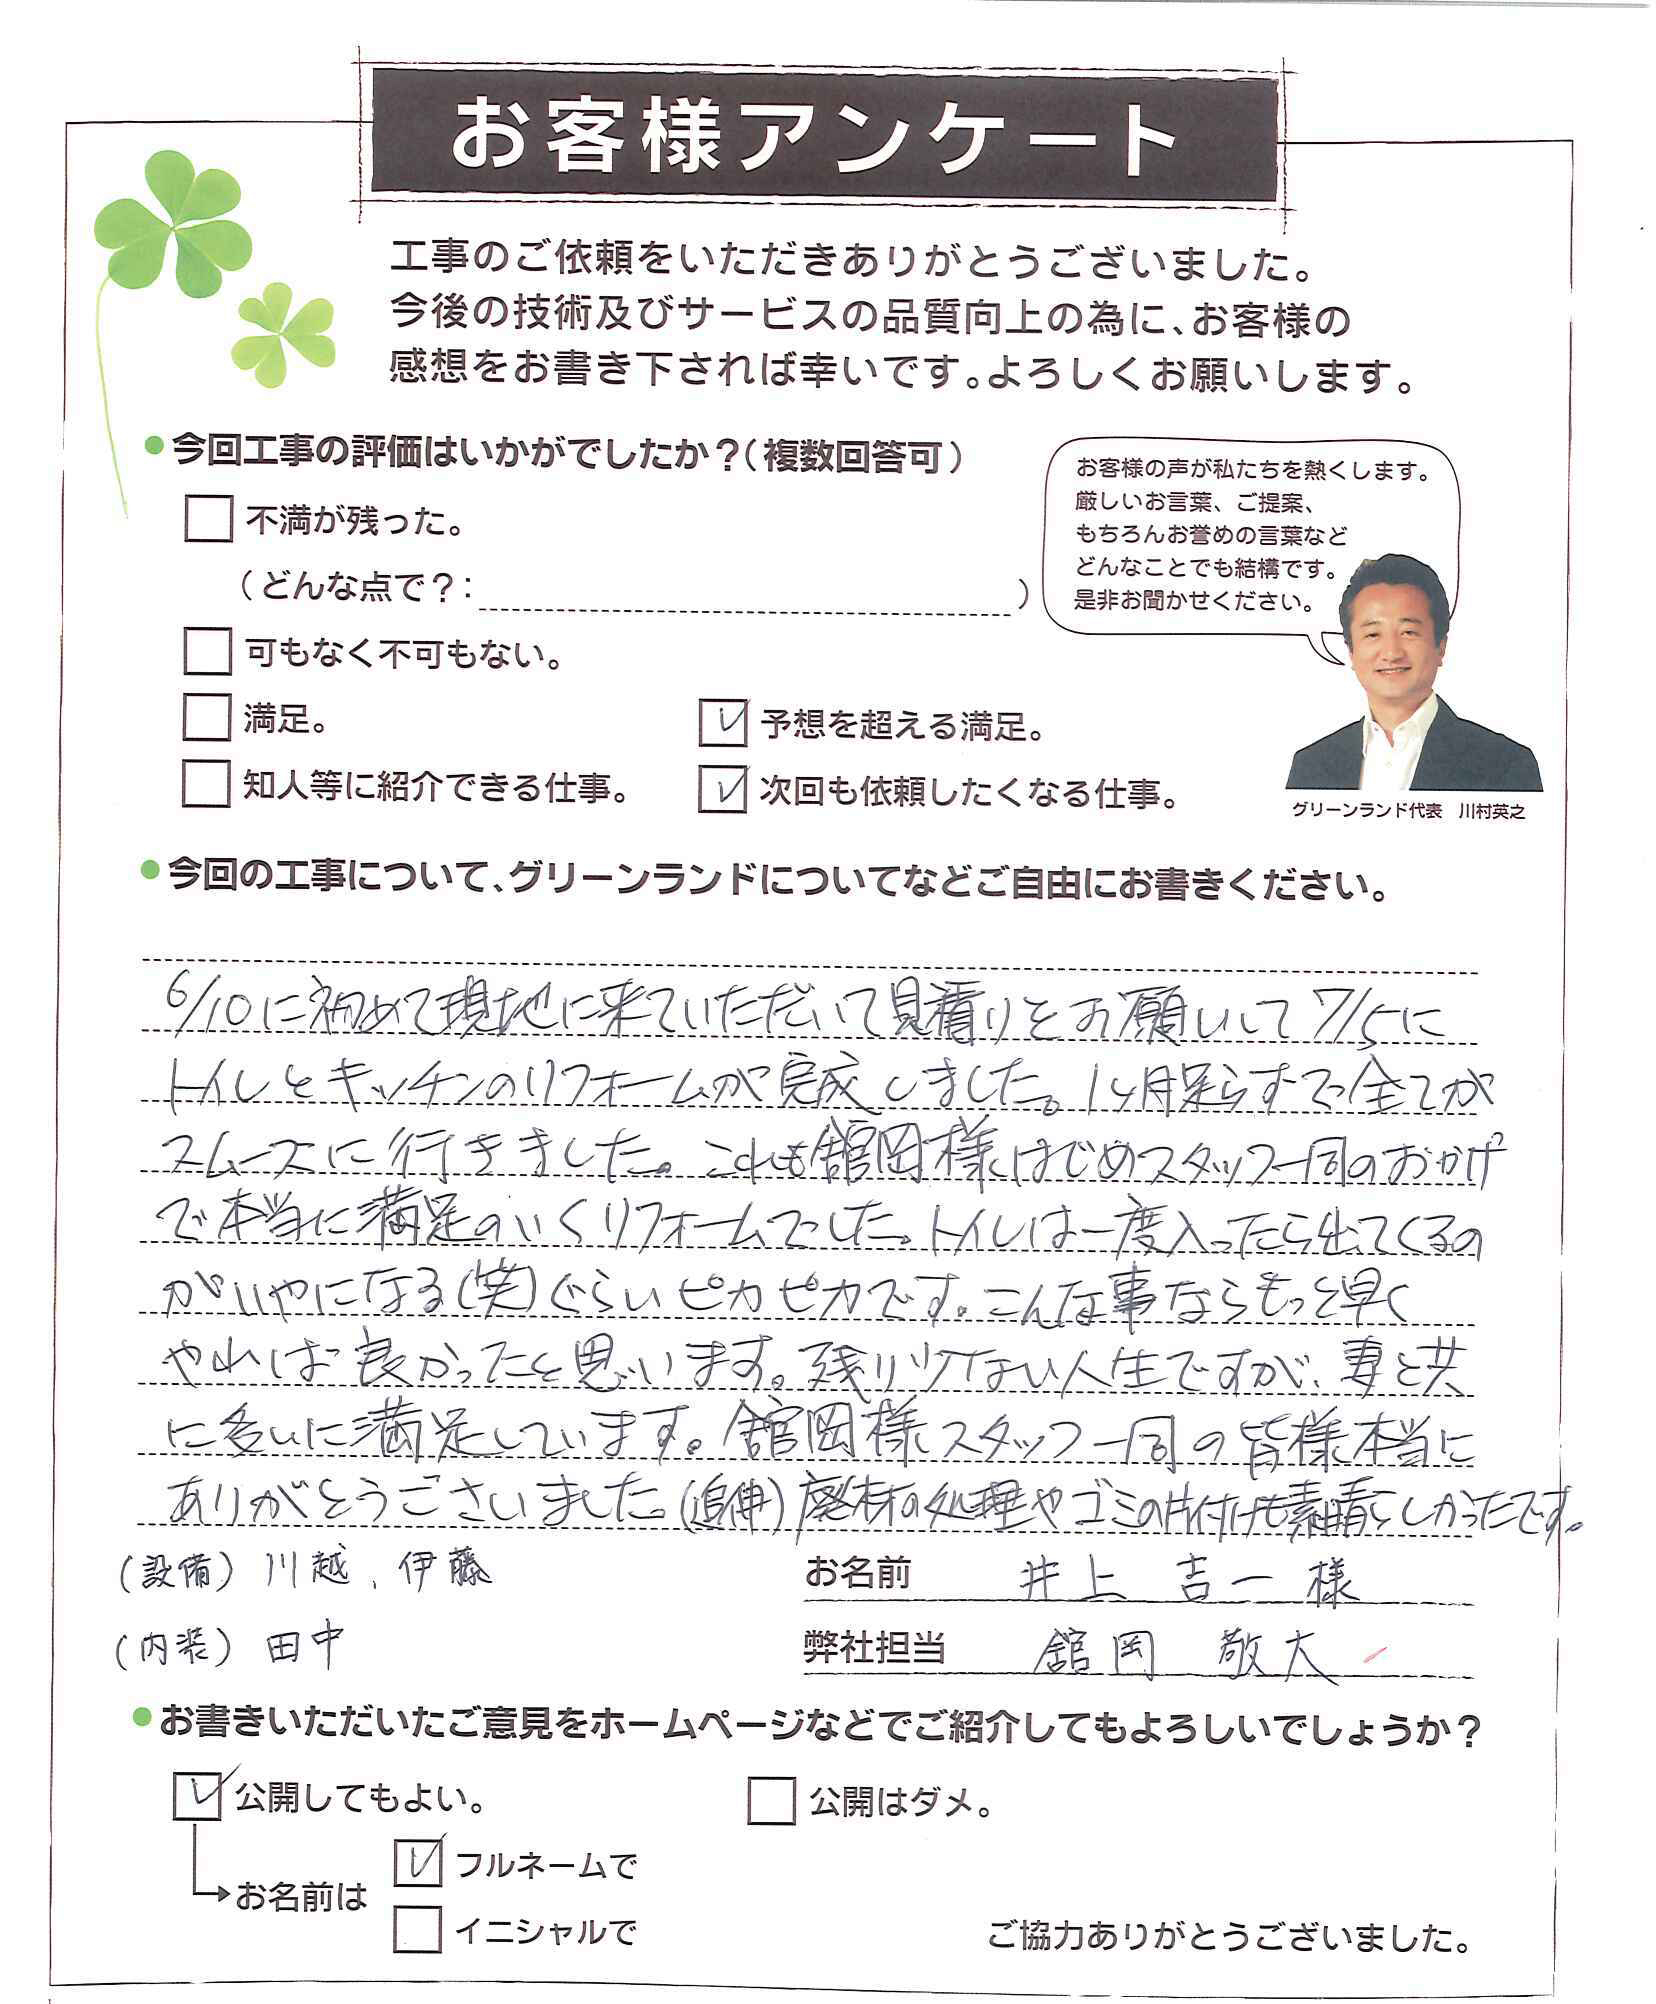 お客様アンケート
工事のご依頼をいただきありがとうございました。
今後の技術及びサービスの品質向上の為に、お客様の
感想をお書き下されば幸いです。よろしくお願いします。
●今回工事の評価はいかがでしたか？（複数回答可）
不満が残った。
（どんな点で？： ）
可もなく不可もない。
満足。
予想を超える満足。
知人等に紹介できる仕事。
次回も依頼したくなる仕事。
お客様の声が私たちを熱くします。
厳しいお言葉、ご提案、
もちろんお誉めの言葉など
どんなことでも結構です。
是非お聞かせください。
グリーンランド代表　川村英之
●今回の工事について、グリーンランドについてなどご自由にお書きください。
6/10に初めて現地に来ていただいて見積りをお願いして7/5に
トイレとキッチンのリフォームが完成しました。1ヶ月足らずで全てが
スムースに行きました。これも舘岡様はじめスタッフ一同のおかげ
で本当に満足のいくリフォームでした。トイレは一度入ったら出てくるの
がいやになる(笑)ぐらいピカピカです。こんな事ならもっと早く
やれば良かったと思います。残り少ない人生ですが、妻と共
に多いに満足しています。舘岡様スタッフ一同の皆様本当に
ありがとうございました。(追伸)廃材の処理やゴミの片付けも素晴らしかったです。
(設備) 川越、伊藤
(内装) 田中
お名前　井上 吉一 様
弊社担当　舘岡 敬大
●お書きいただいたご意見をホームページなどでご紹介してもよろしいでしょうか？
公開してもよい。
公開はダメ。
お名前は
フルネームで
イニシャルで
ご協力ありがとうございました。